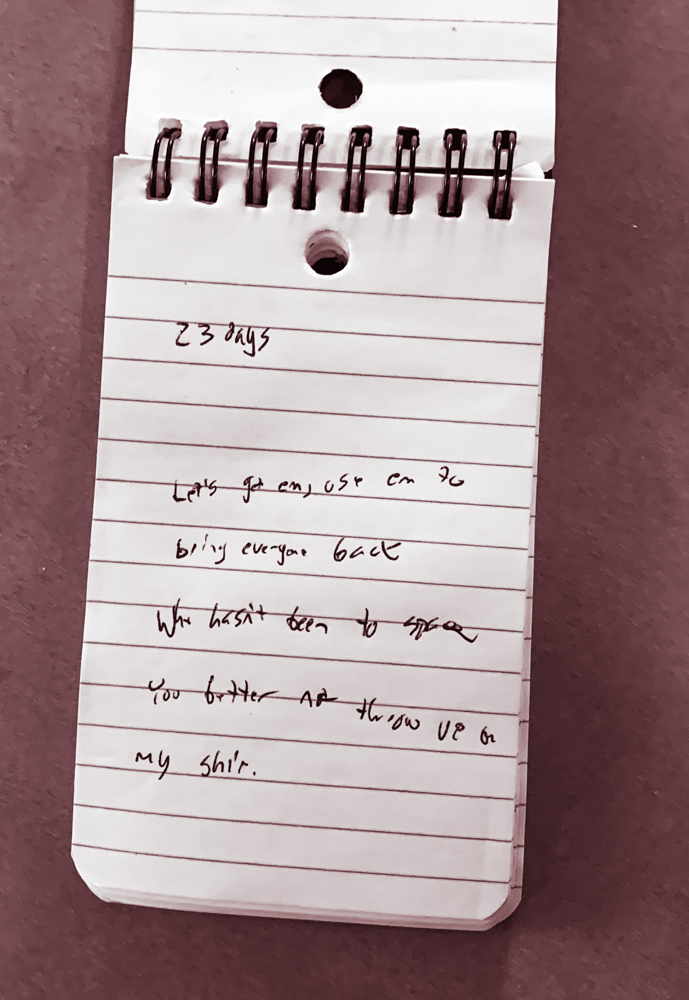 23 days
Let's get em, use em to
bring everyone back
Who hasn't been to space
You better not throw up on
my ship.